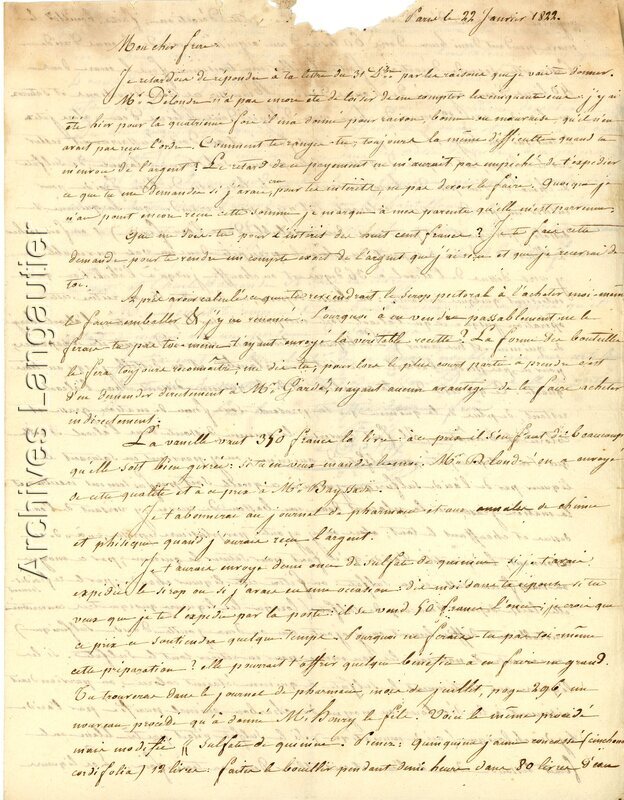 Paris le 22 Janvier 1822.
Mon cher frere:
Je retardois de répondre à ta lettre du 31 Xbre par les raisons que je vais te donner.
Mr Delondre n'a pas encore été de loisir de me compter les cinquante écus: j'y ai
été hier pour la quatrième fois il m'a donné pour raison, bonne ou mauvaise, qu'il n'en
avait pas reçu l'ordre. Comment te ranges-tu, toujours la même difficulté quand tu
m'envoie de l'argent? Le retard de ce payement ne m'aurait pas empêché de t'expedier
ce que tu me demandes si j'avais cru, pour tes intérêts, ne pas devoir le faire. Quoique je
n'ai point encore reçu cette somme je marque à mes parents qu'elle m'est parvenue.
Que me dois-tu pour l'intérêt de huit cent francs? Je te fais cette
demande pour te rendre un compte exact de l'argent que j'ai reçu et que je recevrai de
toi.
Après avoir calculé ce que te reviendrait le sirop pectoral à l'acheter moi-même
le faire emballer &, j'y ai renoncé. Pourquoi à en vendre passablement ne le
ferais-tu pas toi-même t'ayant envoyé la véritable recette? La forme des bouteilles
le fera toujours reconnaître, me dis-tu, pour lors le plus court parti à prendre c'est
d'en demander directement à Mr Gardé, n'ayant aucun avantage de le faire acheter
indirectement.
La vanille vaut 350 francs la livre: à ce prix il s'en faut de beaucoup
qu'elle soit bien givrée: si tu en veux mande le moi. Mr Delondre en a envoyé
de cette qualité et à ce prix à Mr
Je t'abonnerai au journal de pharmacie et aux annales de chimie
et phisique quand j'aurais reçu l'argent.
Je t'aurais envoyé demi once de sulfate de quinine si je t'avais
expedié le sirop ou si j'avais eu une occasion: dis moi dans ta reponse si tu
veux que je te l'expedie par la poste: il se vend 50 francs l'once; je crois que
ce prix se soutiendra quelque temps. Pourquoi ne ferais-tu pas toi-même
cette préparation? elle pourrait t'offrir quelque bénéfice à en faire en grand.
Tu trouveras dans le journal de pharmacie, mois de juillet, page 296, un
nouveau procédé qu'a donné Mr Henry le fils. Voici le même procédé
mais modifié " Sulfate de quinine. Prenez: Quinquina jaune concassé (cinchona
cordifolia) 12 livres: faites le bouillir pendant demi heure dans 80 livres d'eau
Archives Langautier